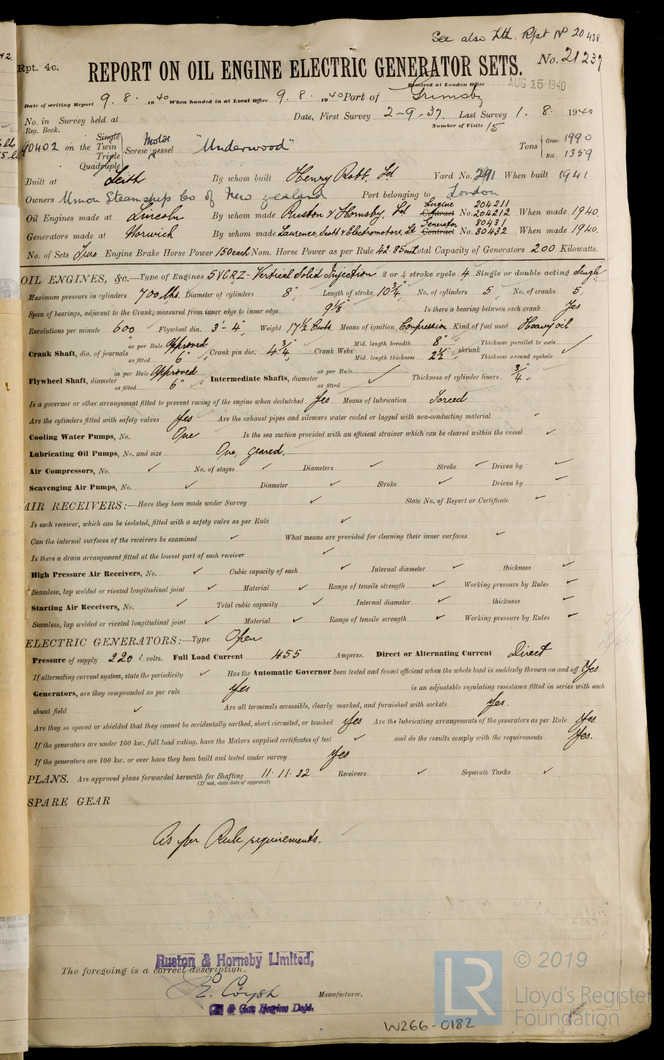 See also Lth. Rpt No 20458
Rpt. 4c.
REPORT ON OIL ENGINE ELECTRIC GENERATOR SETS.
No. 21237
Received at London Office AUG 15 1940
Date of writing Report 9. 8. 1940 When handed in at Local Office 9. 8. 1940 Port of Grimsby
No. in Survey held at Date, First Survey 2-9-39 Last Survey 1. 8. 1940
Reg. Book. Number of Visits 15
40402 on the Single Twin Triple Quadruple Screw Motor vessel "Underwood" Tons Gross 1990 Net 1359
Built at Leith By whom built Henry Robb Ld Yard No. 291 When built 1941
Owners Union Steamship Co of New Zealand Port belonging to London
Oil Engines made at Lincoln By whom made Ruston & Hornsby, Ld Engine Contract No. 204211 204212 When made 1940.
Generators made at Norwich By whom made Laurence, Scott & Electromotors, Ld Generator Contract No. 80431 80432 When made 1940.
No. of Sets Two Engine Brake Horse Power 150 each Nom. Horse Power as per Rule 42.85 Total Capacity of Generators 200 Kilowatts.
OIL ENGINES, &c.—Type of Engines 5VCRZ - Vertical Solid Injection 2 or 4 stroke cycle 4 Single or double acting Single
Maximum pressure in cylinders 700 lbs. Diameter of cylinders 8" Length of stroke 10 3/4" No. of cylinders 5 No. of cranks 5
Span of bearings, adjacent to the Crank; measured from inner edge to inner edge 9 1/8" Is there a bearing between each crank Yes
Revolutions per minute 600 Flywheel dia. 3'-4" Weight 17 1/2 Means of ignition Compression Kind of fuel used Heavy oil
Crank Shaft, dia. of journals as per Rule Approved as fitted 6" Crank pin dia. 4 3/4 Crank Webs Mid. length breadth 8" Mid. length thickness shrunk Thickness parallel to axis ✓ Thickness around eyehole ✓
Flywheel Shaft, diameter as per Rule Approved as fitted 6" Intermediate Shafts, diameter as per Rule as fitted ✓ Thickness of cylinder liners 3/4
Is a governor or other arrangement fitted to prevent racing of the engine when declutched Yes Means of lubrication Forced
Are the cylinders fitted with safety valves Yes Are the exhaust pipes and silencers water cooled or lagged with non-conducting material ✓
Cooling Water Pumps, No. One Is the sea suction provided with an efficient strainer which can be cleared within the vessel ✓
Lubricating Oil Pumps, No. and size One, geared.
Air Compressors, No. ✓ No. of stages ✓ Diameters ✓ Stroke ✓ Driven by ✓
Scavenging Air Pumps, No. ✓ Diameter ✓ Stroke ✓ Driven by ✓
AIR RECEIVERS:—Have they been made under Survey ✓ State No. of Report or Certificate ✓
Is each receiver, which can be isolated, fitted with a safety valve as per Rule ✓
Can the internal surfaces of the receivers be examined ✓ What means are provided for cleaning their inner surfaces ✓
Is there a drain arrangement fitted at the lowest part of each receiver ✓
High Pressure Air Receivers, No. ✓ Cubic capacity of each ✓ Internal diameter ✓ thickness ✓
Seamless, lap welded or riveted longitudinal joint ✓ Material ✓ Range of tensile strength ✓ Working pressure by Rules ✓
Starting Air Receivers, No. ✓ Total cubic capacity ✓ Internal diameter ✓ thickness ✓
Seamless, lap welded or riveted longitudinal joint ✓ Material ✓ Range of tensile strength ✓ Working pressure by Rules ✓
ELECTRIC GENERATORS:—Type Open
Pressure of supply 220 volts. Full Load Current 455 Amperes. Direct or Alternating Current Direct
If alternating current system, state the periodicity ✓ Has the Automatic Governor been tested and found efficient when the whole load is suddenly thrown on and off Yes
Generators, are they compounded as per rule Yes is an adjustable regulating resistance fitted in series with each
shunt field ✓ Are all terminals accessible, clearly marked, and furnished with sockets Yes.
Are they so spaced or shielded that they cannot be accidentally earthed, short circuited, or touched Yes Are the lubricating arrangements of the generators as per Rule Yes
If the generators are under 100 kw. full load rating, have the Makers supplied certificates of test ✓ and do the results comply with the requirements Yes.
If the generators are 100 kw. or over have they been built and tested under survey Yes
PLANS. Are approved plans forwarded herewith for Shafting 11.11.32 Receivers ✓ Separate Tanks ✓
(If not, state date of approval)
SPARE GEAR
As per Rule requirements.
Ruston & Hornsby Limited,
The foregoing is a correct description.
Manufacturer.
Oil & Gas Engine Dept.
W266-0182
LR © 2019
Lloyd's Register
Foundation